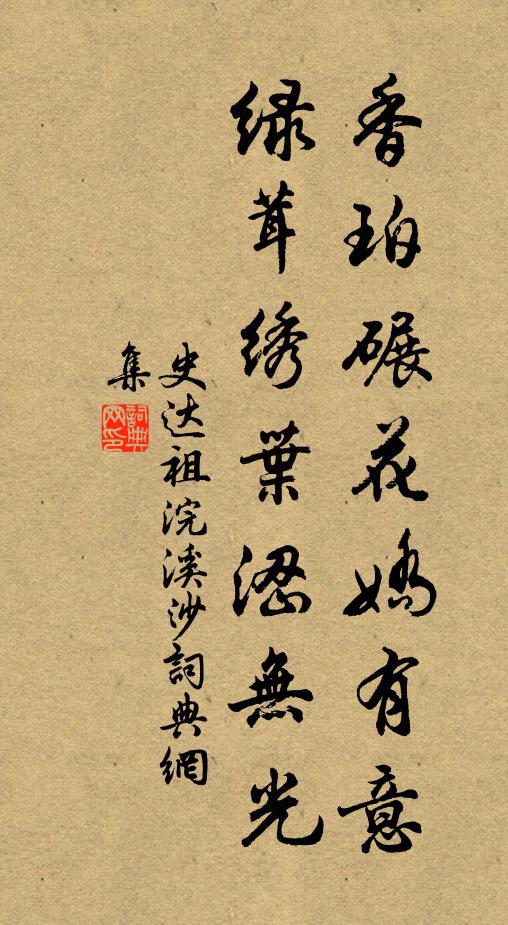 香珀碾花娇有意
绿茸绣葉涩無光
史达祖浣溪沙詞典網
集
詞典网印